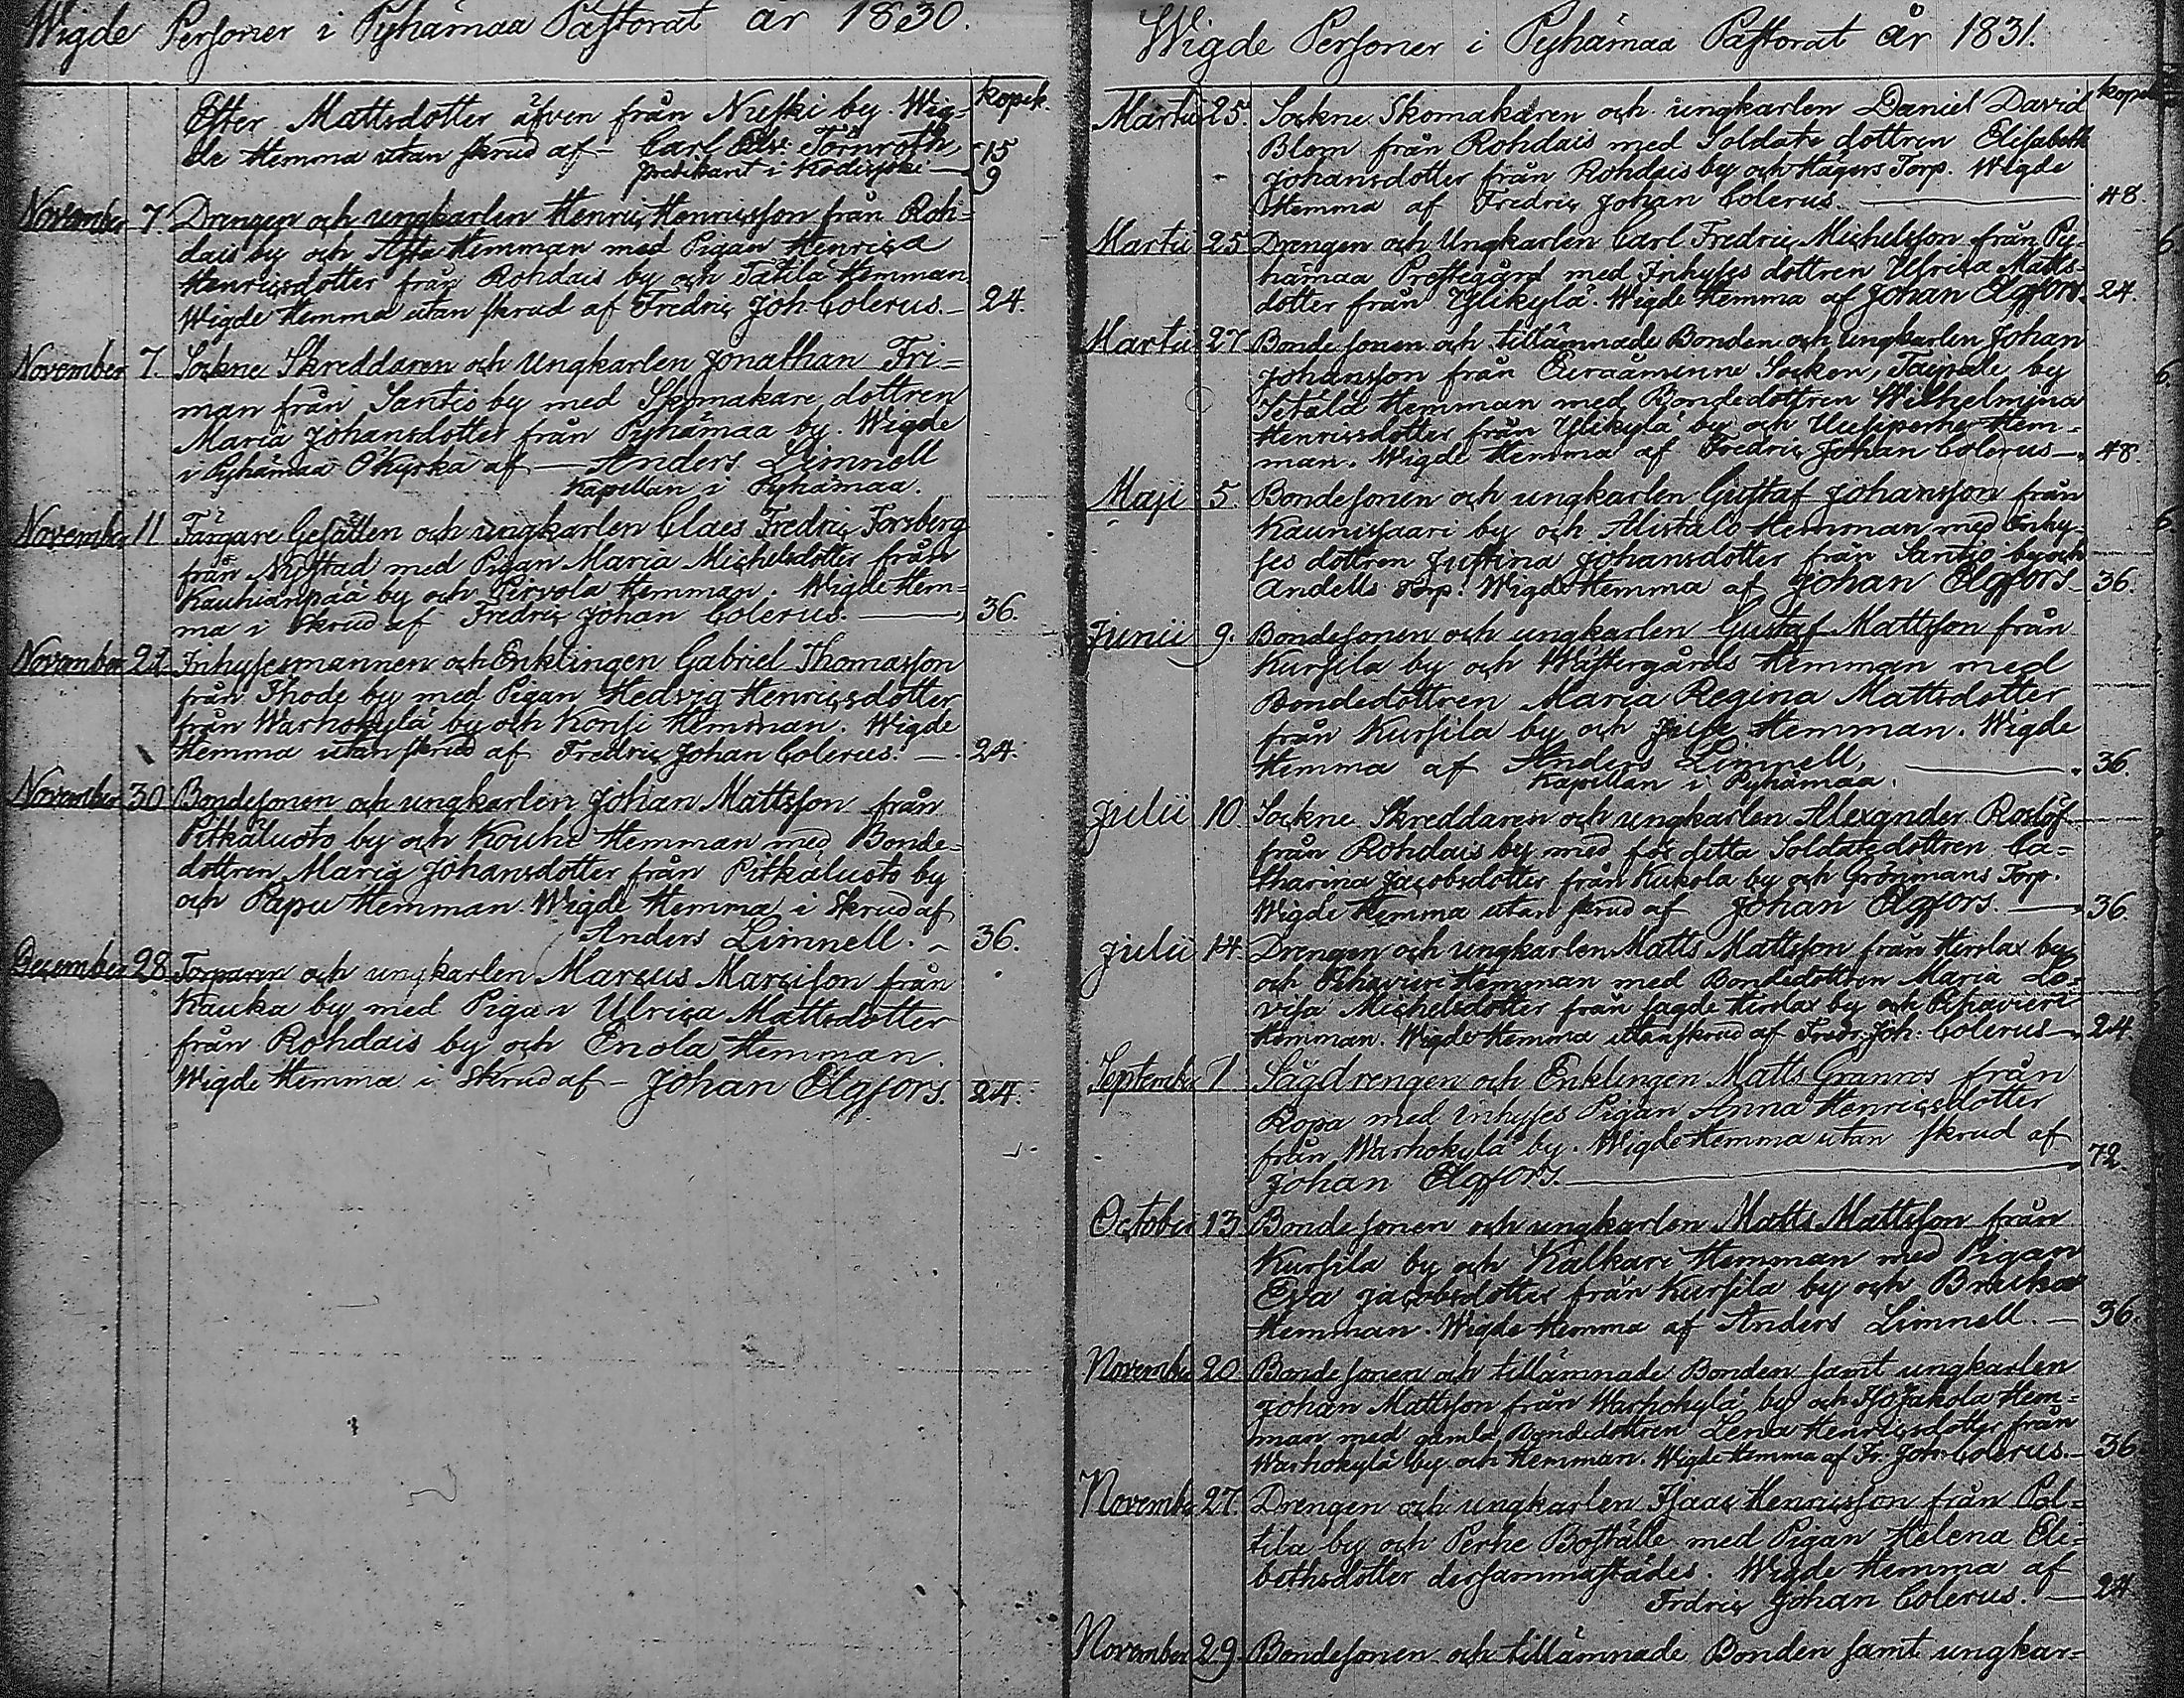 Wigde Personer i Pyhämaa Pastorat år 1830.
kopek.
Ester Mattsdotter äfven från Nuski by. Wig-
de Hemma utan skrud af - Carl Törnroth, 15
predikant i Kodisjoki - 9
November 7. Drengen och ungkarlen Henric Henricsson från Roh-
dais by och Hemman med Pigan Henrica
Henricsdotter från Rohdais by och Tätilä Hemman
Wigde Hemma utan skrud af Fredric Joh. Colerus. - 24.
November 7. Sockne Skreddaren och Ungkarlen Jonathan Fri-
man från Santio by med Skomakare dottren
Maria Johansdotter från Pyhämaa by. Wigde
i Pyhämaa Ö Kyrka af - Anders Limnell
Kapellan i Pyhämaa.
November 11 Färgare Gesällen och ungkarlen Claes Fredric Forsberg
från Nystad med Pigan Maria Michelsdotter från
Kauhianpää by och Pirvola Hemman. Wigde Hem-
ma i skrud af Fredric Johan Colerus. 36.
November Inhysesmannen och Enklingen Gabriel Thomasson
från Ihode by med Pigan Hedvig Henricsdotter
från Warhokylä by och Konsi Hemman. Wigde
Hemma utan skrud af Fredric Johan Colerus. - 24.
November 30 Bondesonen och ungkarlen Johan Mattsson från
Pitkäluoto by och Kouhi Hemman med Bonde-
dottren Maria Johansdotter från Pitkäluoto by
och Papu Hemman. Wigde Hemma i Skrud af
Anders Limnell. - 36.
December 28 Torparen och ungkarlen Marcus Marcisson från
Kauka by med Pigan Ulrica Mattsdotter
från Rohdais by och Enola Hemman
Wigde Hemma i Skrud af - Johan Elgfors. 24.
Wigde Personer i Pyhämaa Pastorat år 1831.
Martii 25. Sockne Skomakaren och ungkarlen Daniel David
Blom från Rohdais med Soldate dottren Elisabeth
Johansdotter från Rohdais by och Hägers Torp. Wigde
Hemma af Fredric Johan Colerus. 48.
Martii 25 Drengen och Ungkarlen Carl Fredric Michelsson från Py-
hämaa Prestegård med Inhyses dottren Ulrica Matts-
dotter från Ylikylä. Wigde Hemma af Johan Elgfors. 24.
Martii 27 Bonde sonen och tillämnade Bonden och ungkarlen Johan
Johansson från Euraåminne Socken, Taipale by
Setälä Hemman med Bondedottren Wilhelmina
Henricsdotter från Ylikylä by och Uusiperhe Hem-
man. Wigde Hemma af Fredric Johan Colerus - 48.
Maji 5. Bondesonen och ungkarlen Gustaf Johansson från
Kaunissaari by och Alistalo Hemman med Inhy-
ses dottren Justina Johansdotter från Santio by och
Andells Torp. Wigde Hemma af Johan Elgfors - 36.
Junii 9. Bondesonen och ungkarlen Gustaf Mattsson från
Kursila by och Wästergårds Hemman med
Bondedottren Maria Regina Mattsdotter
från Kursila by och Juse Hemman. Wigde
Hemma af Anders Limnell, 36.
Kapellan i Pyhämaa.
Julii 10. Sockne Skreddaren och ungkarlen Alexander Roslöf
från Rohdais by med för detta Soldatsdottren Ca-
tharina Jacobsdotter från Kukola by och Grönmans Torp.
Wigde Hemma utan skrud af Johan Elgfors. 36
Julii 14. Drengen och ungkarlen Matts Mattsson från Hirslax by
och Hemman med Bondedottren Maria Lo-
visa Michelsdotter från sagde Hirslax by och
Hemman. Wigde Hemma utan skrud af Fredr. Joh. Colerus - 24
September 1 Sågdrengen och Enklingen Matts Granros från
Ropa med Inhyses Pigan Anna Henricsdotter
från Warhokylä by. Wigde Hemma utan skrud af
Johan Elgfors. 72.
October 13 Bonde sonen och ungkarlen Matts Mattsson från
Kursila by och Kalkari Hemman med Pigan
Eva Jacobsdotter från Kursila by och
Hemman. Wigde Hemma af Anders Limnell. - 36
November 20 Bonde sonen och tillämnade Bonden samt ungkarlen
Johan Mattsson från Warhokylä by och IsoJakola Hem-
man med gamla Bondedottren Lena Henricsdotter från
Warhokylä by och Hemman. Wigde Hemma af Fr. Joh. Colerus. - 36
November 27. Drengen och ungkarlen Isaac Henricsson från Pol-
tila by och Perhe Boställe med Pigan Helena Eli-
bethsdotter dersammastädes. Wigde Hemma af
Fredric Johan Colerus. - 24
November 29. Bondesonen och tillämnade Bonden samt ungkar-